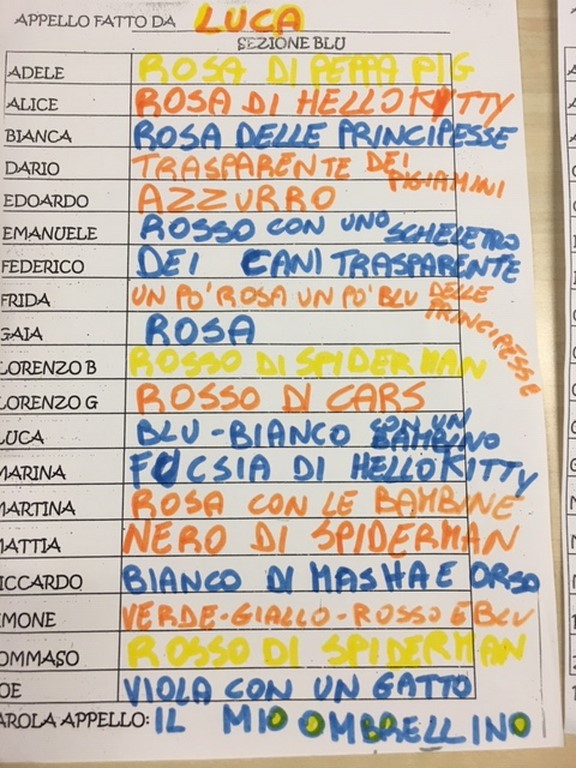 APPELLO FATTO DA LUCA
SEZIONE BLU
ADELE ROSA DI PEPPA PIG
ALICE ROSA DI HELLO KITTY
BIANCA ROSA DELLE PRINCIPESSE
DARIO TRASPARENTE DEI PIGIAMINI
EDOARDO AZZURRO
EMANUELE ROSSO CON UNO SCHELETRO
FEDERICO DEI CANI TRASPARENTE
FRIDA UN PO' ROSA UN PO' BLU DELLE PRINCIPESSE
GAIA ROSA
LORENZO B ROSSO DI SPIDERMAN
LORENZO G ROSSO DI CARS
LUCA BLU-BIANCO CON UN BAMBINO
MARINA FUCSIA DI HELLO KITTY
MARTINA ROSA CON LE BAMBINE
MATTIA NERO DI SPIDERMAN
ICCARDO BIANCO DI MASHA E ORSO
IMONE VERDE-GIALLO-ROSSO E BLU
OMMASO ROSSO DI SPIDERMAN
OE VIOLA CON UN GATTO
AROLA APPELLO: IL MIO OMBRELLINO